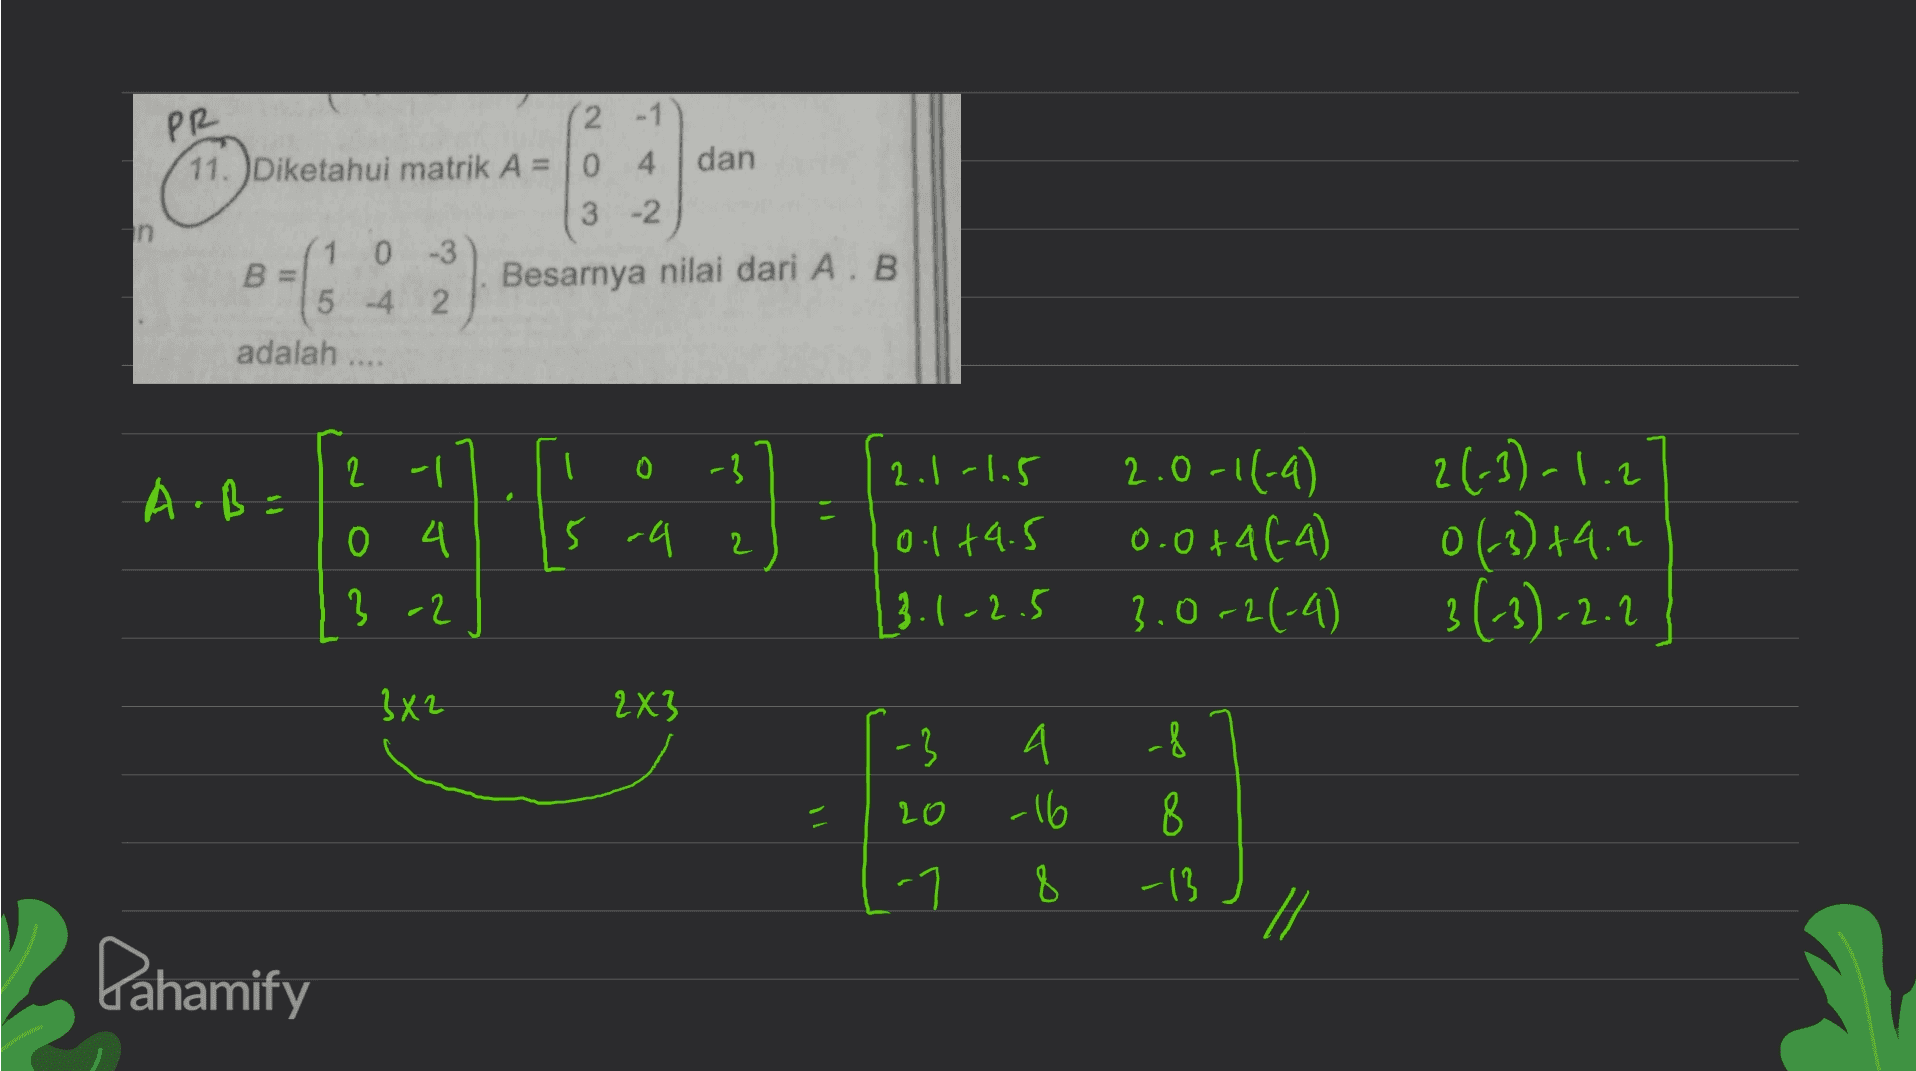 PR
11. Diketahui matrik A = (2 -1
0 4
3 -2) dan
in
B = (1 0 -3
5 -4 2). Besarnya nilai dari A . B
adalah ....
A . B = [2 -1
0 4
3 -2] . [1 0 -3
5 -4 2] = [2.1 -1.5 2.0 -1(-4) 2(-3) -1.2
0.1 +4.5 0.0 +4(-4) 0(-3) +4.2
3.1 -2.5 3.0 -2(-4) 3(-3) -2.2]
3x2 2x3
= [-3 4 -8
20 -16 8
-7 8 -13] //
Pahamify